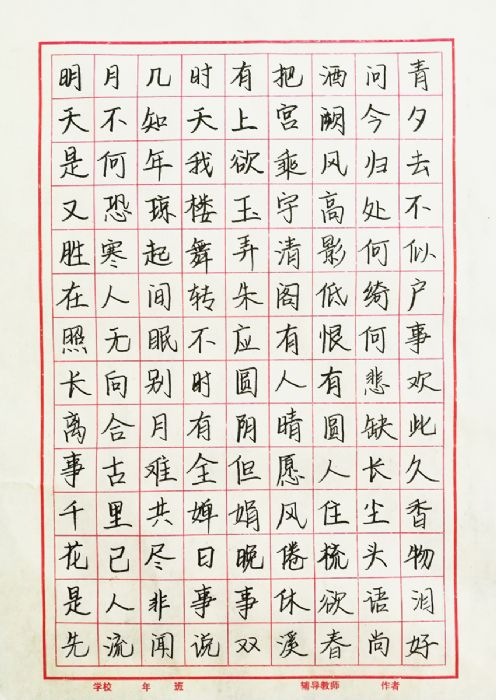 明月几时有把洒问青
天不知天上宫阙今夕
是何年我欲乘风归去
又恐琼楼玉宇高处不
胜寒起舞弄清影何似
在人间转朱阁低绮户
照无眠不应有恨何事
长向别时圆人有悲欢
离合月有阴晴圆缺此
事古难全但愿人长久
千里共婵娟风住尘香
花已尽日晚倦梳头物
是人非事事休欲语泪
先流闻说双溪春尚好
学校 年 班 辅导教师 作者